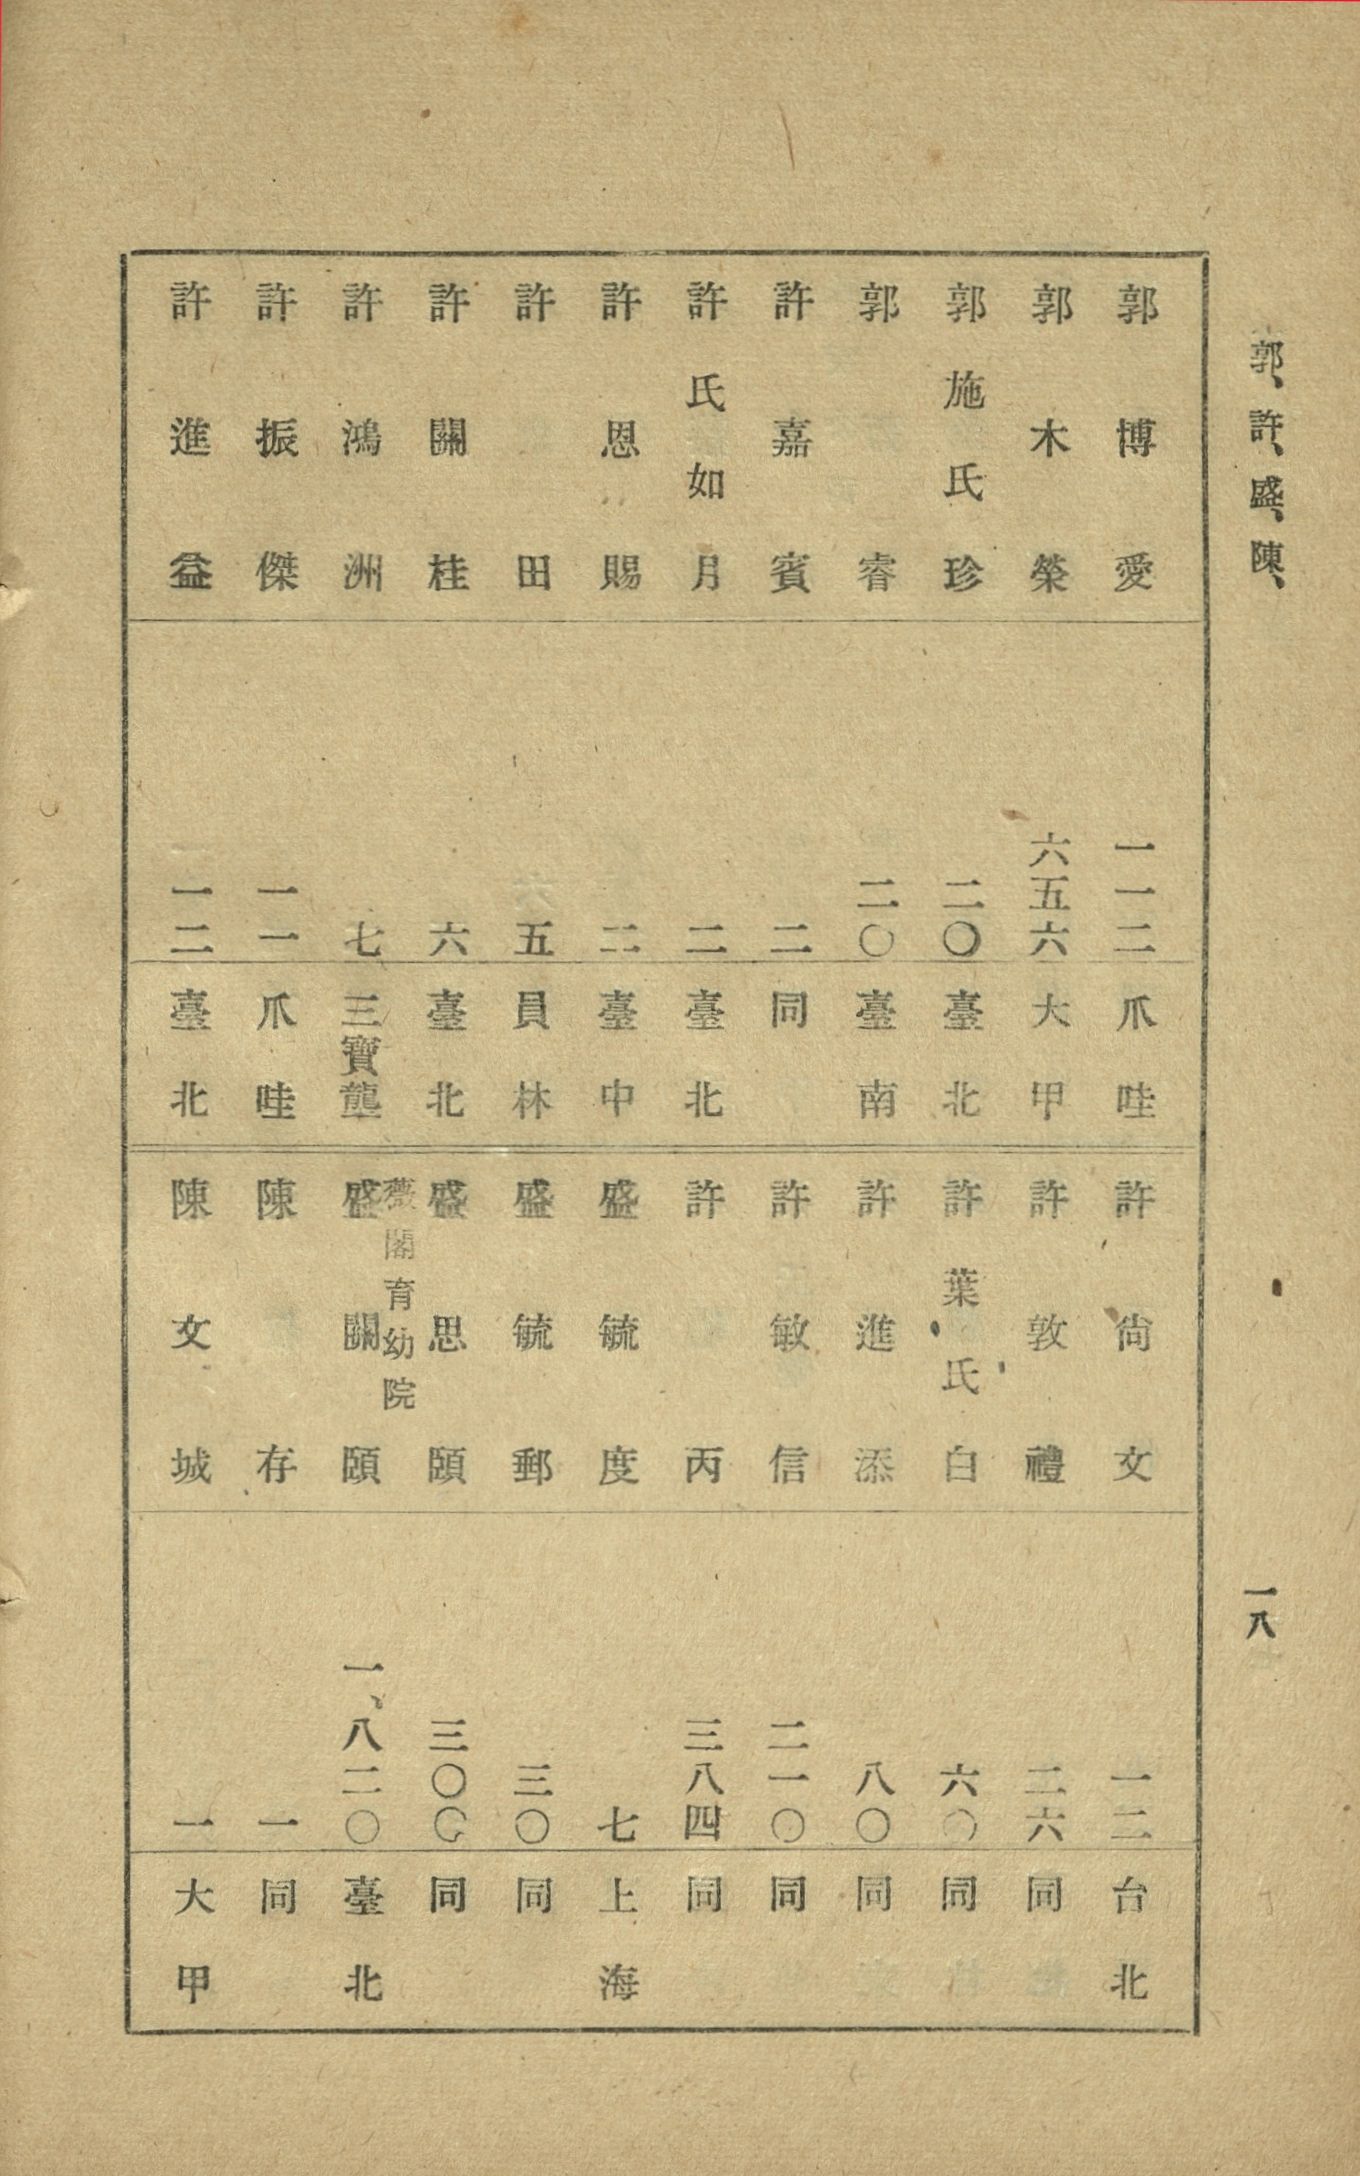 郭、許、盛、陳、
一八
郭博愛 一一二 爪哇
郭木榮 六五六 大甲
郭施氏珍 二〇 臺北
郭睿 二〇 臺南
許嘉賓 二 同
許氏如月 二 臺北
許恩賜 二 臺中
許田 五 員林
許關桂 六 臺北
許鴻洲 七 三寶壟
許振傑 一一 爪哇
許進益 一二 臺北
許尙文 一二 台北
許敦禮 二六 同
許葉氏白 六〇 同
許進添 八〇 同
許敏信 二一〇 同
許丙 三八四 同
盛毓度 七 上海
盛毓郵 三〇 同
盛思頤 三〇〇 同
薇閣育幼院
盛關頤 一、八二〇 臺北
陳存 一 同
陳文城 一 大甲